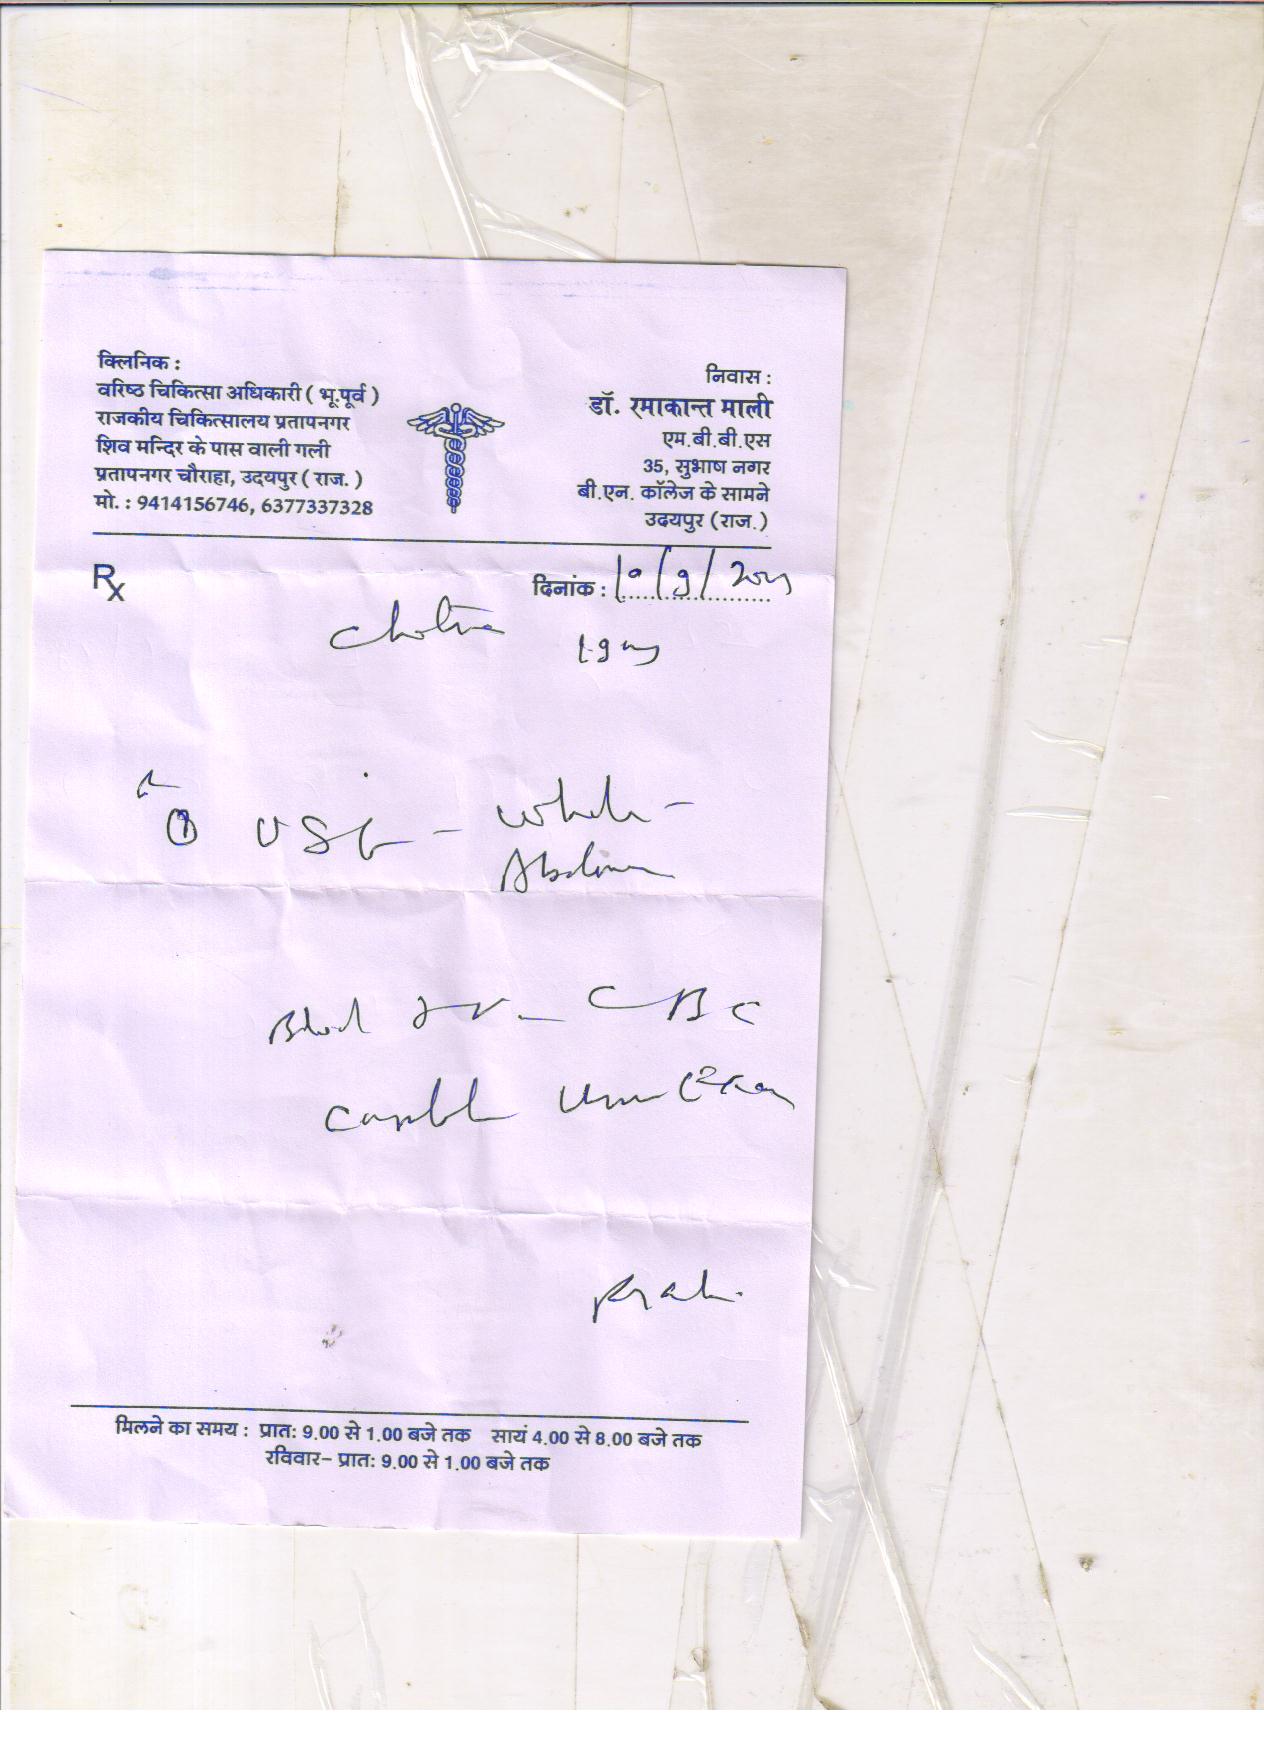 क्लिनिक :
वरिष्ठ चिकित्सा अधिकारी ( भू.पूर्व )
राजकीय चिकित्सालय प्रतापनगर
शिव मन्दिर के पास वाली गली
प्रतापनगर चौराहा, उदयपुर ( राज. )
मो. : 9414156746, 6377337328
निवास :
डॉ. रमाकान्त माली
एम.बी.बी.एस
35, सुभाष नगर
बी.एन. कॉलेज के सामने
उदयपुर (राज.)
Rx
दिनांक : 10/9/
① USG - Whole
Abdomen
Blood CBC
Complete Urine
मिलने का समय : प्रात: 9.00 से 1.00 बजे तक सायं 4.00 से 8.00 बजे तक
रविवार– प्रात: 9.00 से 1.00 बजे तक